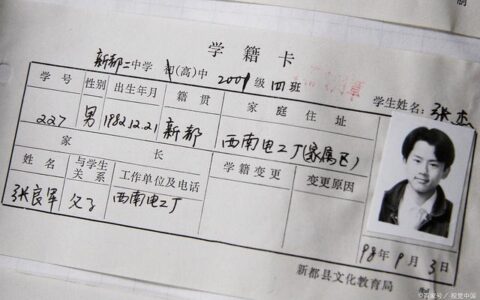 学籍卡
新都二中学 初(高)中 2001级四班
学生姓名:张杰
学号 性别 出生年月 籍贯 家庭住址
227 男 1982.12.21 新都 西南电工厂(家属区)
家长 学籍变更 变更原因
姓名 与学生关系 工作单位及电话
张良军 父子 西南电工厂
98年9月3日
新都县文化教育局 制